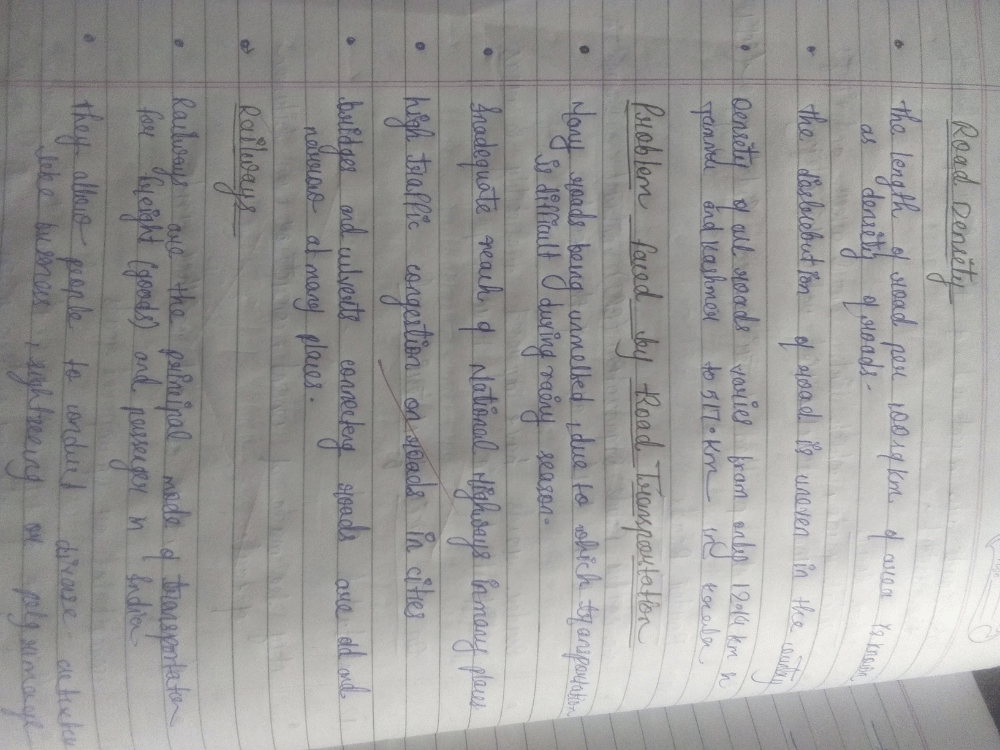 Road Density
the length of road per 100sq km. of area is known
as density of roads.
the distribution of road is uneven in the country
Density of all roads varies from only 12.14 km in
Jammu and Kashmir to 517.km in Kerala
Problem faced by Road Transportation
Many roads being unmetled, due to which transportation
is difficult during rainy season.
Inadequate reach of National Highways in many places
high traffic congestion on roads in cities
bridges and culverts connecting roads are old and
narrow at many places.
Railways
Railways are the principal mode of transportation
for freight (goods) and passenger in India
they allow people to conduct diverse activities
like business, sightseeing or pilgrimage